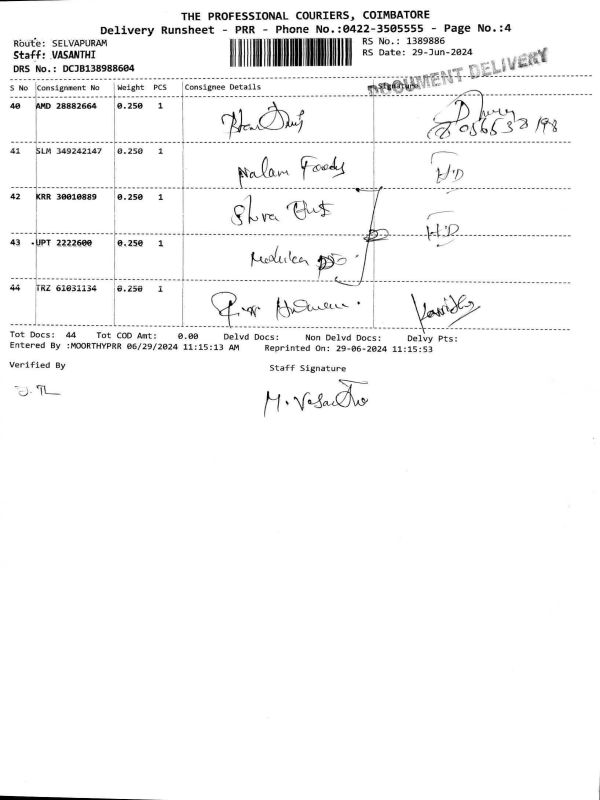 THE PROFESSIONAL COURIERS, COIMBATORE
Delivery Runsheet - PRR - Phone No.:0422-3505555 - Page No.:4
Route: SELVAPURAM
RS No.: 1389886
Staff: VASANTHI
RS Date: 29-Jun-2024
DRS No.: DCJB138988604
DOCUMENT DELIVERY
S No Consignment No Weight PCS Consignee Details Signature
40 AMD 28882664 0.250 1
41 SLM 349242147 0.250 1 Nalam Foods HD
42 KRR 30010889 0.250 1 Shiva HD
43 UPT 2222600 0.250 1
44 TRZ 61031134 0.250 1
Tot Docs: 44 Tot COD Amt: 0.00 Delvd Docs: Non Delvd Docs: Delvy Pts:
Entered By :MOORTHYPRR 06/29/2024 11:15:13 AM Reprinted On: 29-06-2024 11:15:53
Verified By
Staff Signature
M. Vasantha